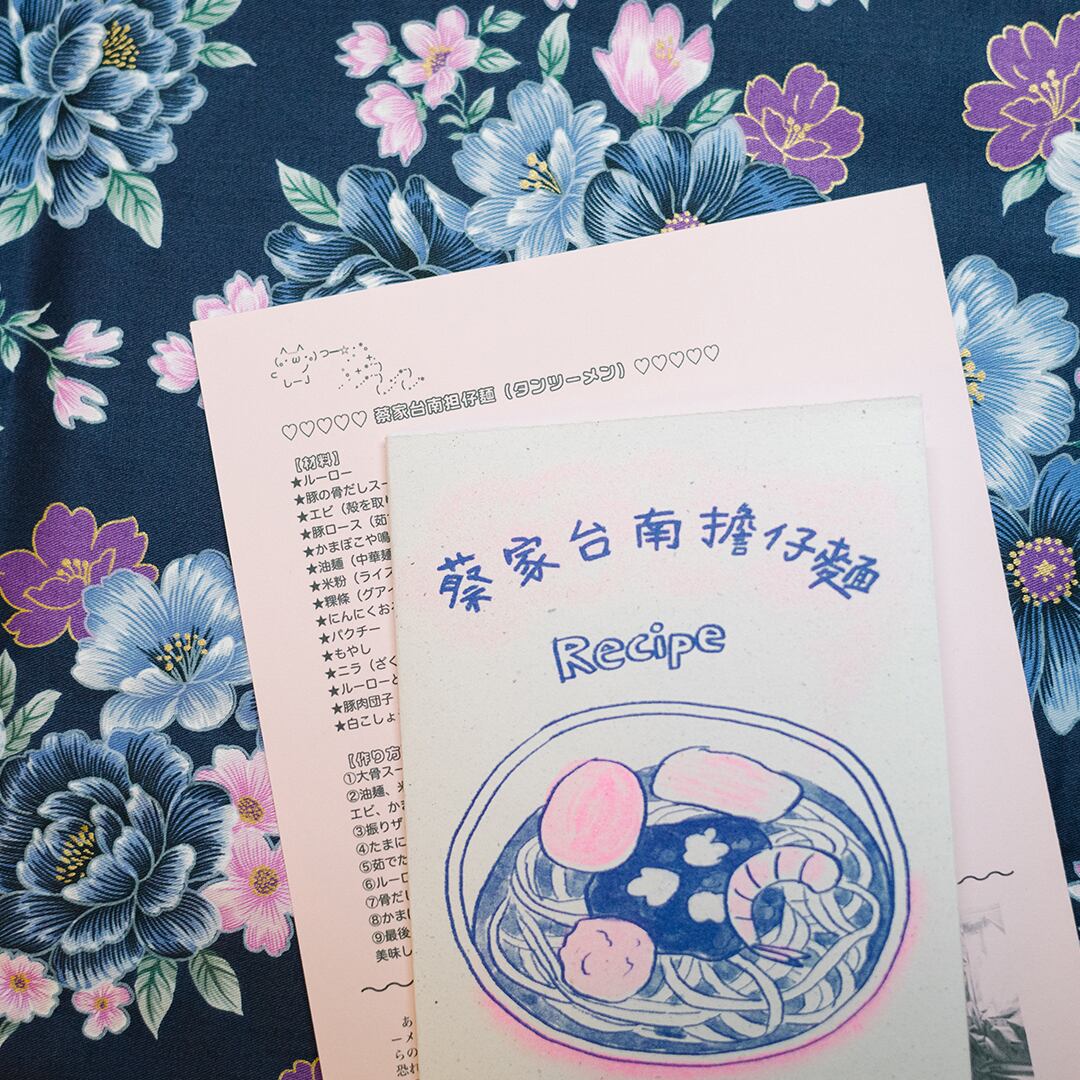 ♡♡♡♡♡ 蔡家台南担仔麺（タンツーメン）♡♡♡♡♡
【材料】
★ルーロー
★豚の骨だしスー
★エビ（殻を取り
★豚ロース（茹で
★かまぼこや鳴
★油麺（中華麺
★米粉（ライス
★粿條（グアイ
★にんにくおろ
★パクチー
★もやし
★ニラ（ざく
★ルーローと
★豚肉団子
★白こしょ
【作り方
①大骨スー
②油麺、米
エビ、かま
③振りザ
④たまに
⑤茹でた
⑥ルーロ
⑦骨だし
⑧かまぼ
⑨最後
美味し
あ
ーメ
らの
恐れ
蔡家台南擔仔麵
Recipe